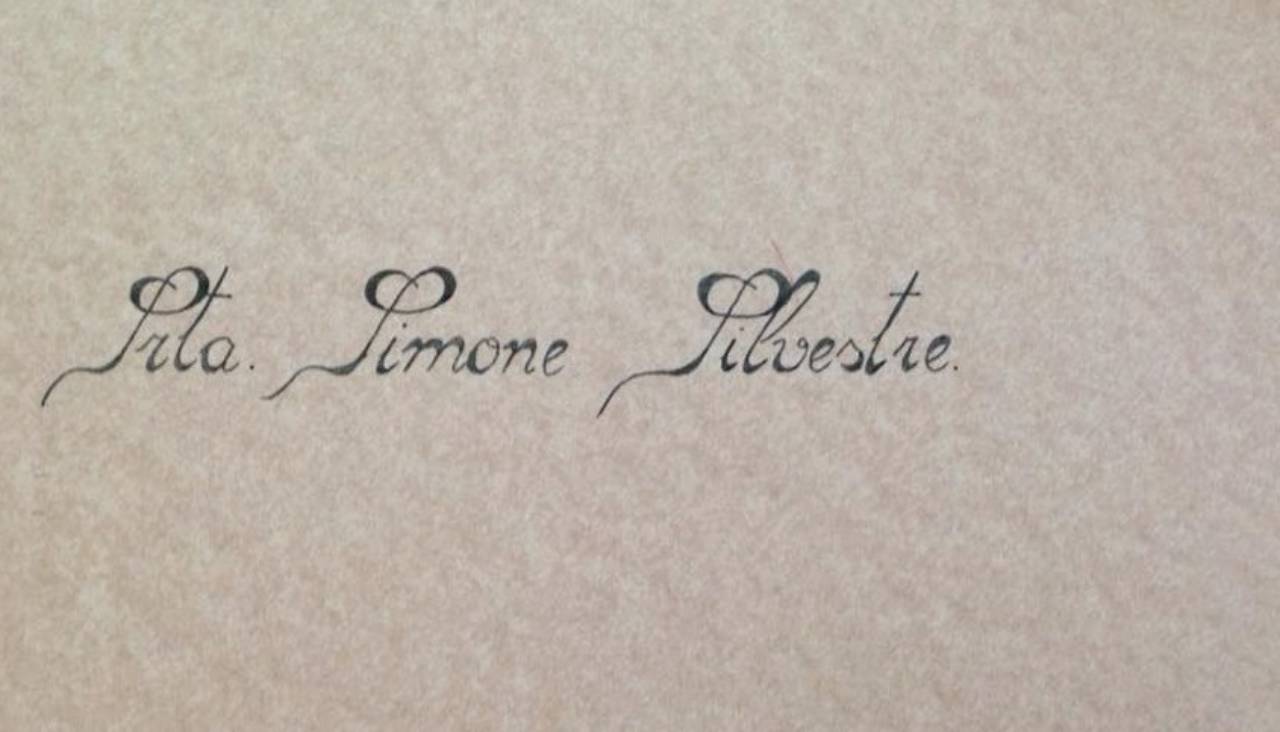 Srta. Simone Silvestre.